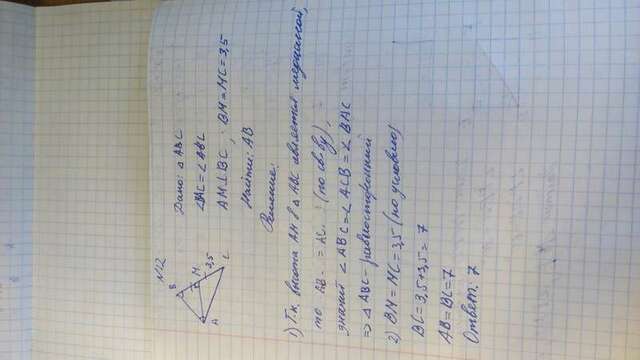 №12
B
M
3,5
A
C
Дано: △ABC
∠BAC = ∠ABC
AM⊥BC, BM = MC = 3,5
Найти: AB
Решение:
1) Т.к. высота AM в △ABC является медианой,
то AB = AC (по св-ву),
значит ∠ABC = ∠ACB = ∠BAC
⇒ △ABC – равносторонний
2) BM = MC = 3,5 (по условию)
BC = 3,5 + 3,5 = 7
AB = BC = 7
Ответ: 7